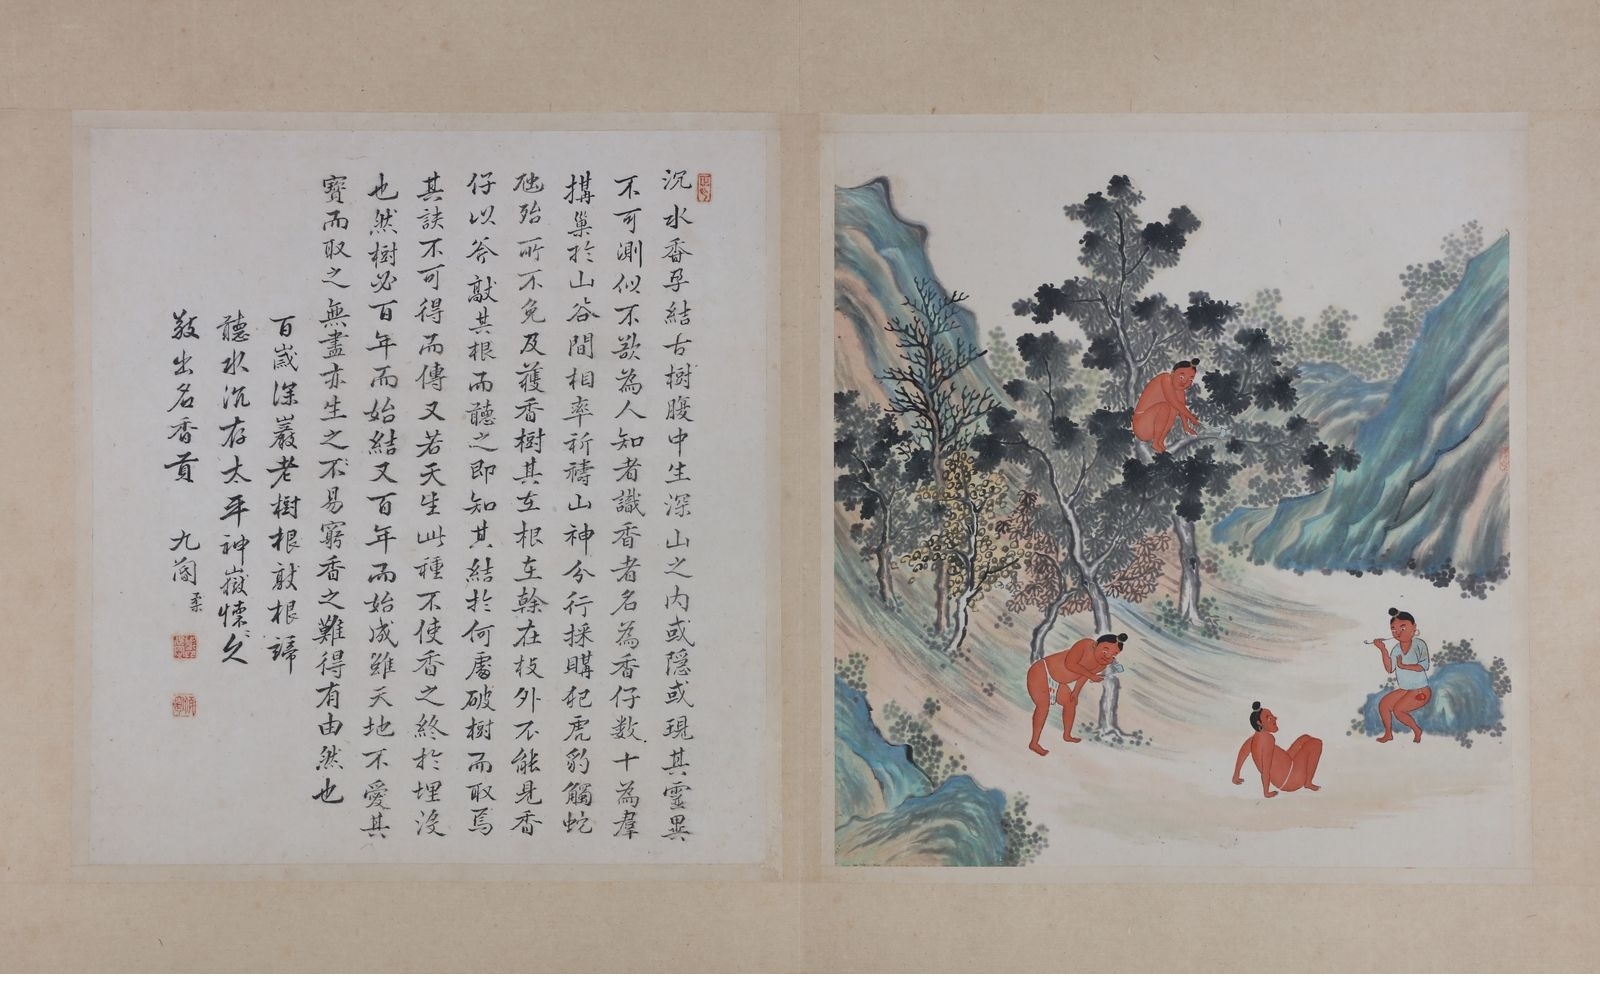 沉水香孕結古樹腹中生深山之內或隱或現其靈異
不可測似不欲為人知者識香者名為香仔數十為羣
搆巢於山谷間相率祈禱山神分行採購犯虎豹觸蛇
虺殆所不免及獲香樹其在根在榦在枝外不能見香
仔以斧敲其根而聽之即知其結於何處破樹而取焉
其訣不可得而傳又若天生此種不使香之終於埋沒
也然樹必百年而始結又百年而始成雖天地不愛其
寶而取之無盡亦生之不易窮香之難得有由然也
百歲深巖老樹根敲根諦
聽水沉存太平神嶽懷懷久
敬出名香貢　九